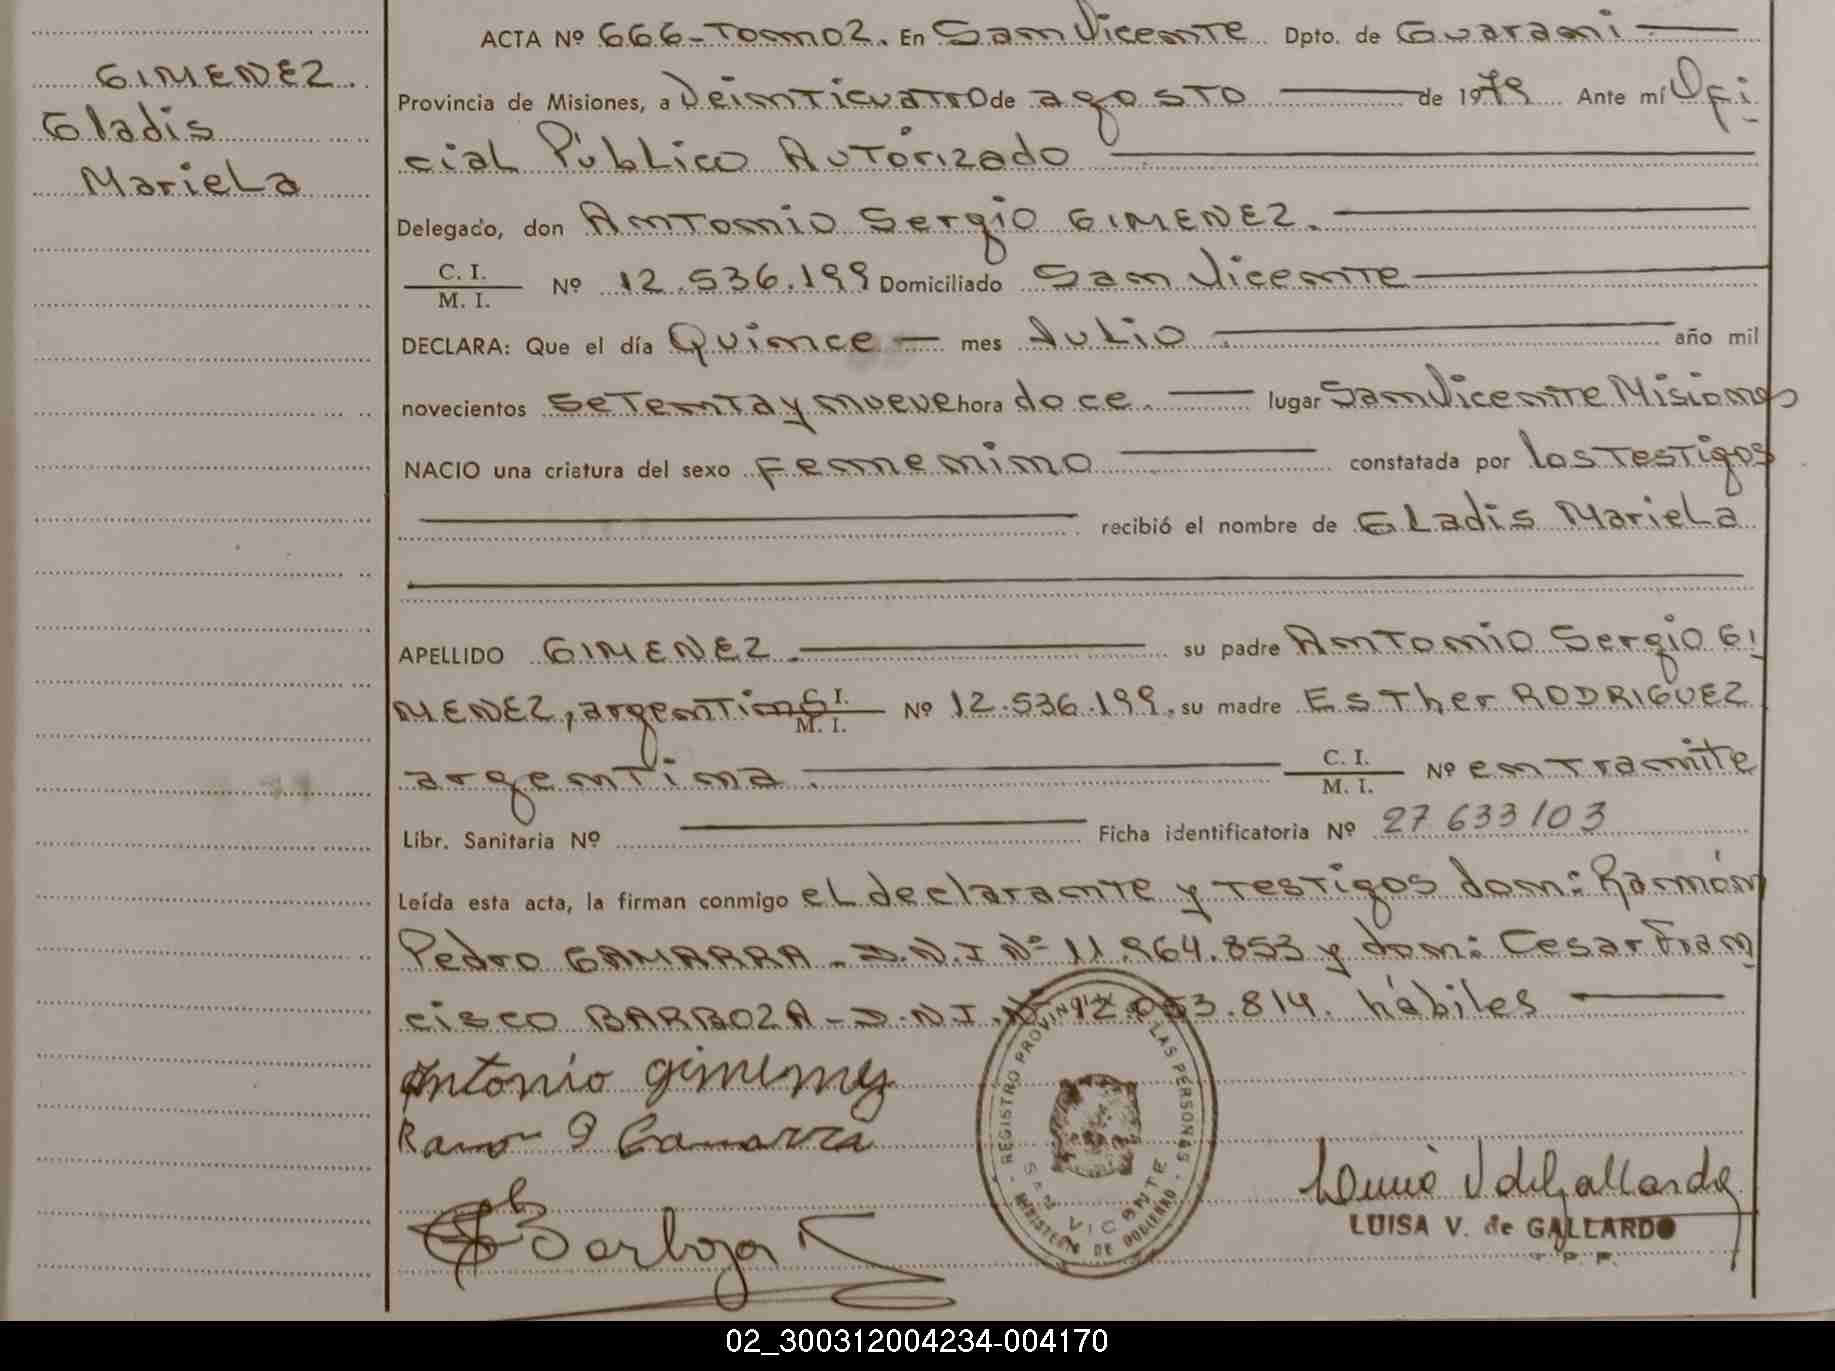 GIMENEZ.
Gladis
Mariela
ACTA Nº 666-Tomo 2. En San Vicente Dpto. de Guarani
Provincia de Misiones, a Veinticuatro de agosto de 1979 Ante mí Ofi
cial Público Autorizado
Delegado, don Antonio Sergio GIMENEZ.
C. I.
M. I. Nº 12.536.199 Domiciliado San Vicente
DECLARA: Que el día Quince mes Julio año mil
novecientos setenta y nueve hora doce. lugar San Vicente Misiones
NACIO una criatura del sexo femenino constatada por los testigos
recibió el nombre de Gladis Mariela
APELLIDO GIMENEZ. su padre Antonio Sergio GI
MENEZ, argentino C. I. M. I. Nº 12.536.199, su madre Esther RODRIGUEZ
argentina. C. I. M. I. Nº en tramite
Libr. Sanitaria Nº Ficha identificatoria Nº 27 633 103
Leída esta acta, la firman conmigo el declarante y testigos don: Ramón
Pedro GAMARRA - D.N.I Nº 11.964.853 y don: Cesar Fran
cisco BARBOZA - D.N.I. Nº 12.053.814. hábiles
Antonio gimenez
Ramon P Gamarra
Barboza
REGISTRO PROVINCIAL LAS PERSONAS
SAN VICENTE
MINISTERIO DE GOBIERNO
LUISA V. de GALLARDO
02_300312004234-004170